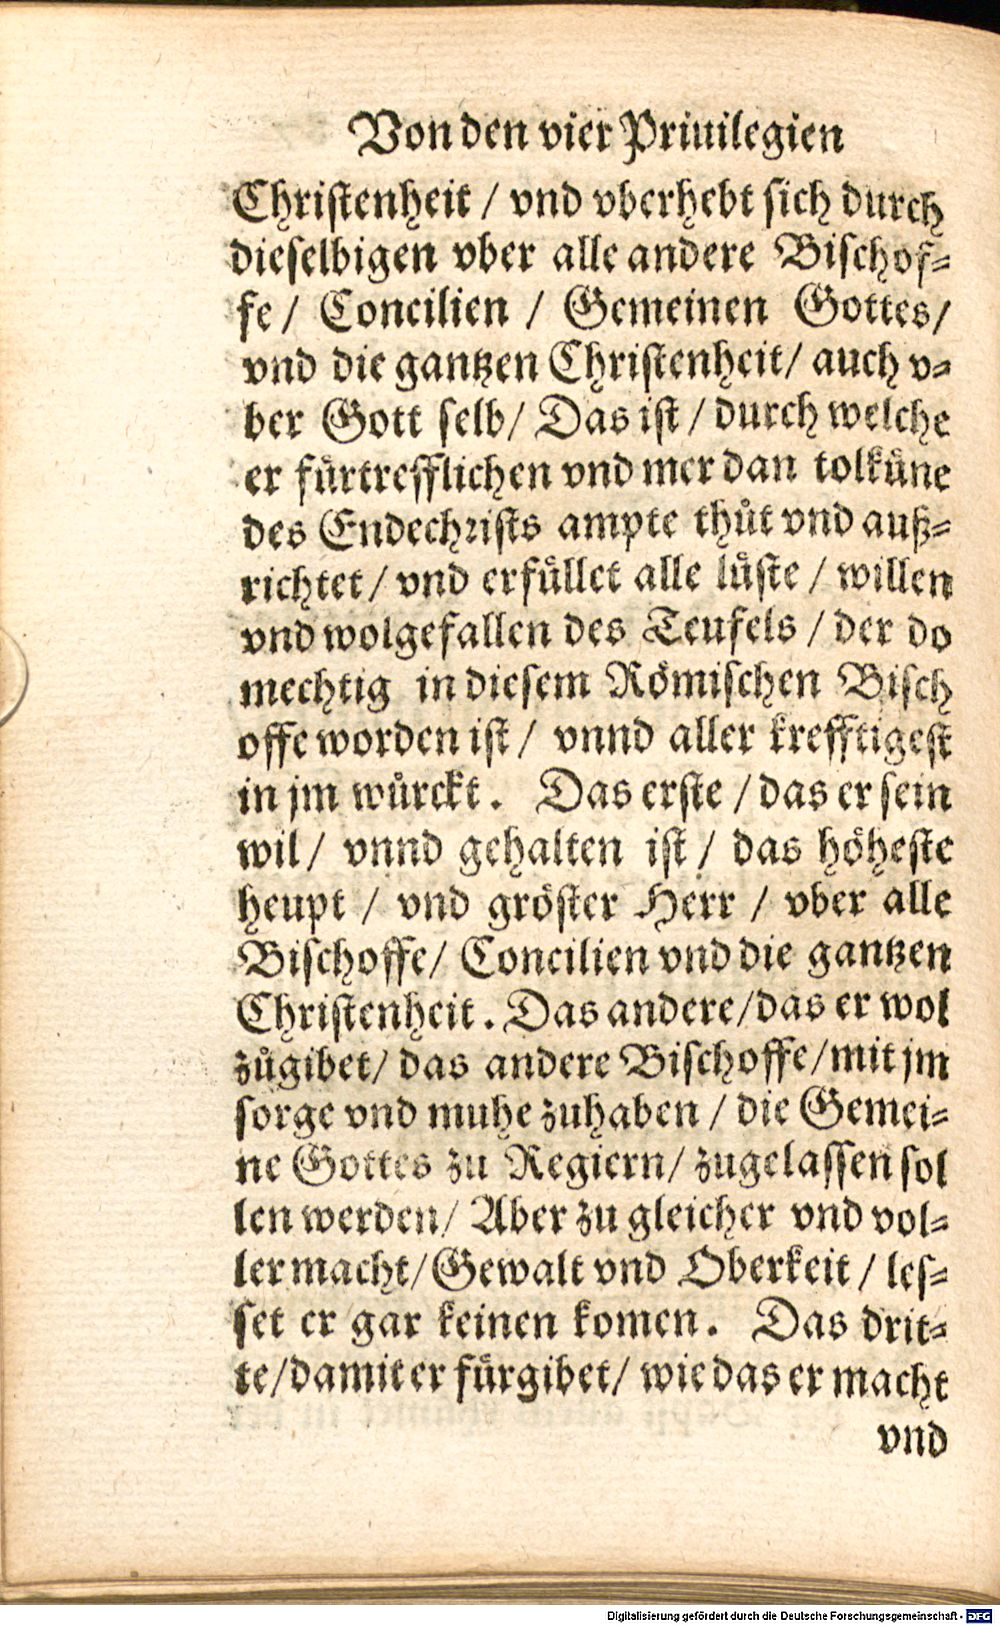 Von den vier Priuilegien
Christenheit / vnd vberhebt sich durch
dieselbigen vber alle andere Bischof-
fe / Concilien / Gemeinen Gottes /
vnd die gantzen Christenheit / auch v-
ber Gott selb / Das ist / durch welche
er fürtrefflichen vnd mer dan tolküne
des Endechrists ampte thůt vnd auß-
richtet / vnd erfüllet alle lüste / willen
vnd wolgefallen des Teufels / der do
mechtig in diesem Römischen Bisch
offe worden ist / vnnd aller krefftigest
in jm würckt. Das erste / das er sein
wil / vnnd gehalten ist / das höheste
heupt / vnd gröster Herr / vber alle
Bischoffe / Concilien vnd die gantzen
Christenheit. Das andere / das er wol
zůgibet / das andere Bischoffe / mit jm
sorge vnd muhe zuhaben / die Gemei-
ne Gottes zu Regiern / zugelassen sol
len werden / Aber zu gleicher vnd vol-
ler macht / Gewalt vnd Oberkeit / les-
set er gar keinen komen. Das drit-
te / damit er fürgibet / wie das er macht
vnd
Digitalisierung gefördert durch die Deutsche Forschungsgemeinschaft - DFG